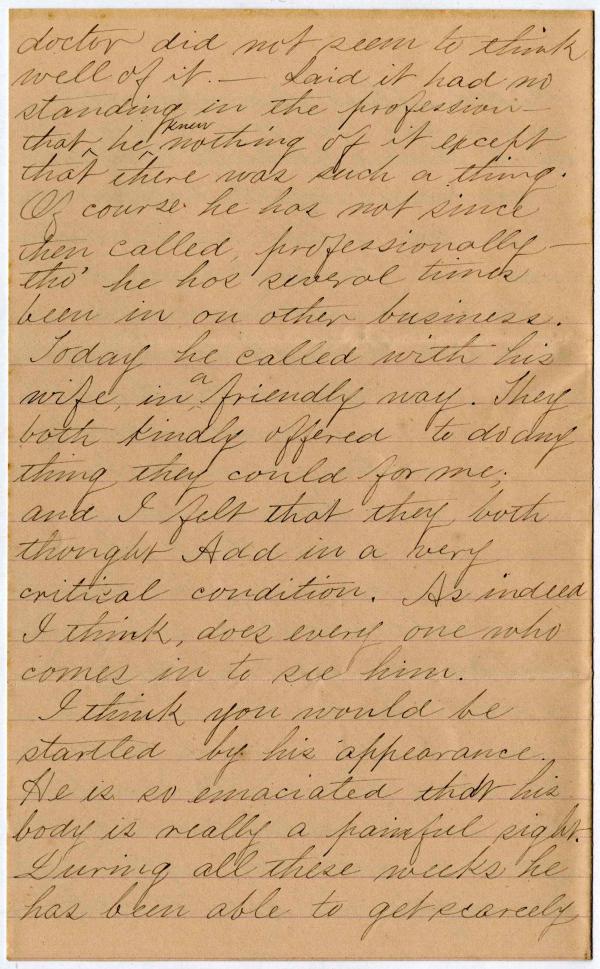 doctor did not seem to think
well of it. — Said it had no
standing in the profession—
that he knew nothing of it except
that there was such a thing.
Of course he has not since
then called, professionally—
tho' he has several times
been in on other business.
Today he called with his
wife, in a friendly way. They
both kindly offered to do any
thing they could for me;
and I felt that they both
thought Add in a very
critical condition. As indeed
I think, does every one who
comes in to see him.
I think you would be
startled by his appearance.
He is so emaciated that his
body is really a painful sight.
During all these weeks he
has been able to get scarcely